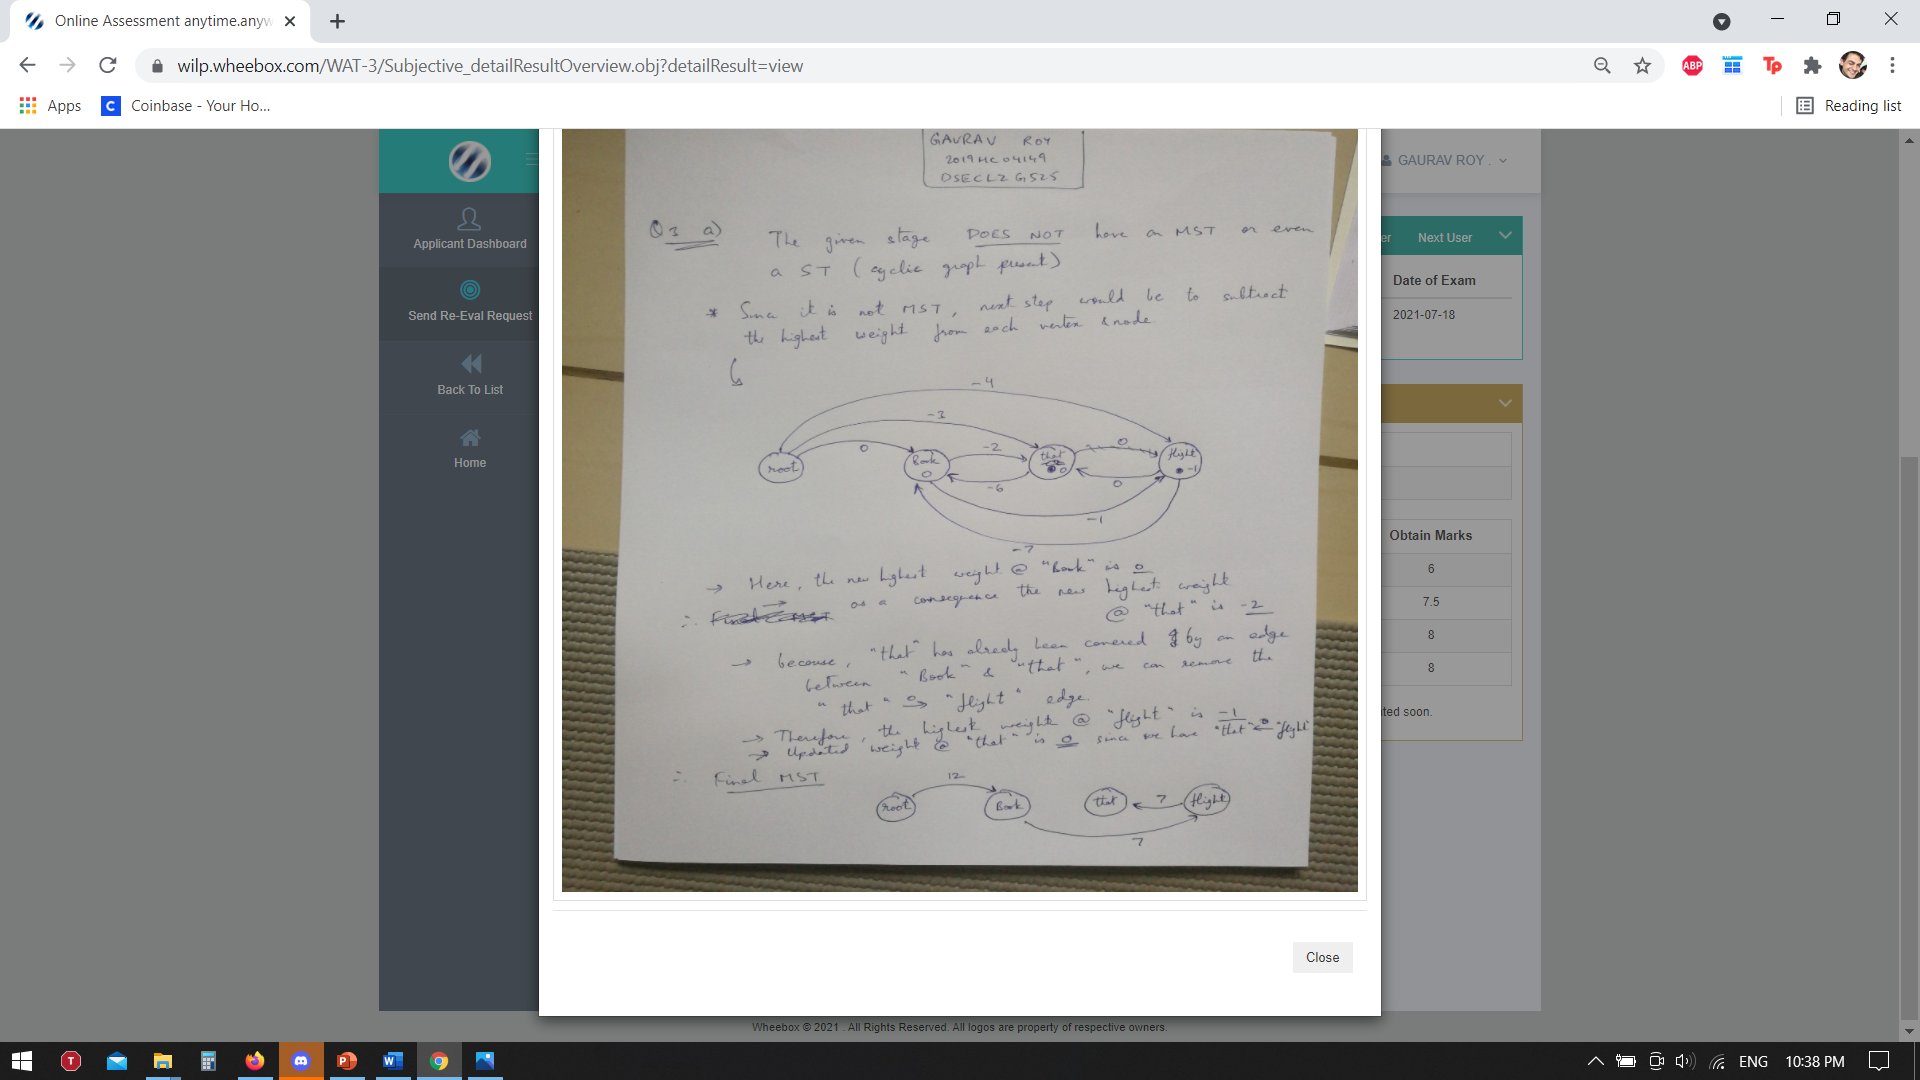 Online Assessment anytime.anyw
wilp.wheebox.com/WAT-3/Subjective_detailResultOverview.obj?detailResult=view
ABP
Tp
Apps
C
Coinbase - Your Ho...
Reading list
GAURAV ROY .
Applicant Dashboard
Send Re-Eval Request
Back To List
Home
er
Next User
Date of Exam
2021-07-18
Obtain Marks
6
7.5
8
8
ted soon.
GAURAV ROY
2019HC04149
DSECLZG525
Q3 a)
The given stage DOES NOT have an MST or even
a ST (cyclic graph present)
* Since it is not MST, next step would be to subtract
the highest weight from each vertex & node
-4
-3
0
-2
0
root
Book
0
that
0
flight
-1
-6
0
-1
-7
→ Here, the new highest weight @ "Book" is 0
∴ as a consequence the new highest weight
@ "that" is -2
→ because, "that" has already been covered by an edge
between "Book" & "that", we can remove the
"that" 0→ "flight" edge.
→ Therefore, the highest weight @ "flight" is -1
→ Updated weight @ "that" is 0 since we have "that" ←0 "flight"
∴ Final MST
12
root
Book
that
7
flight
7
Close
Wheebox © 2021 . All Rights Reserved. All logos are property of respective owners.
T
P
W
ENG
10:38 PM